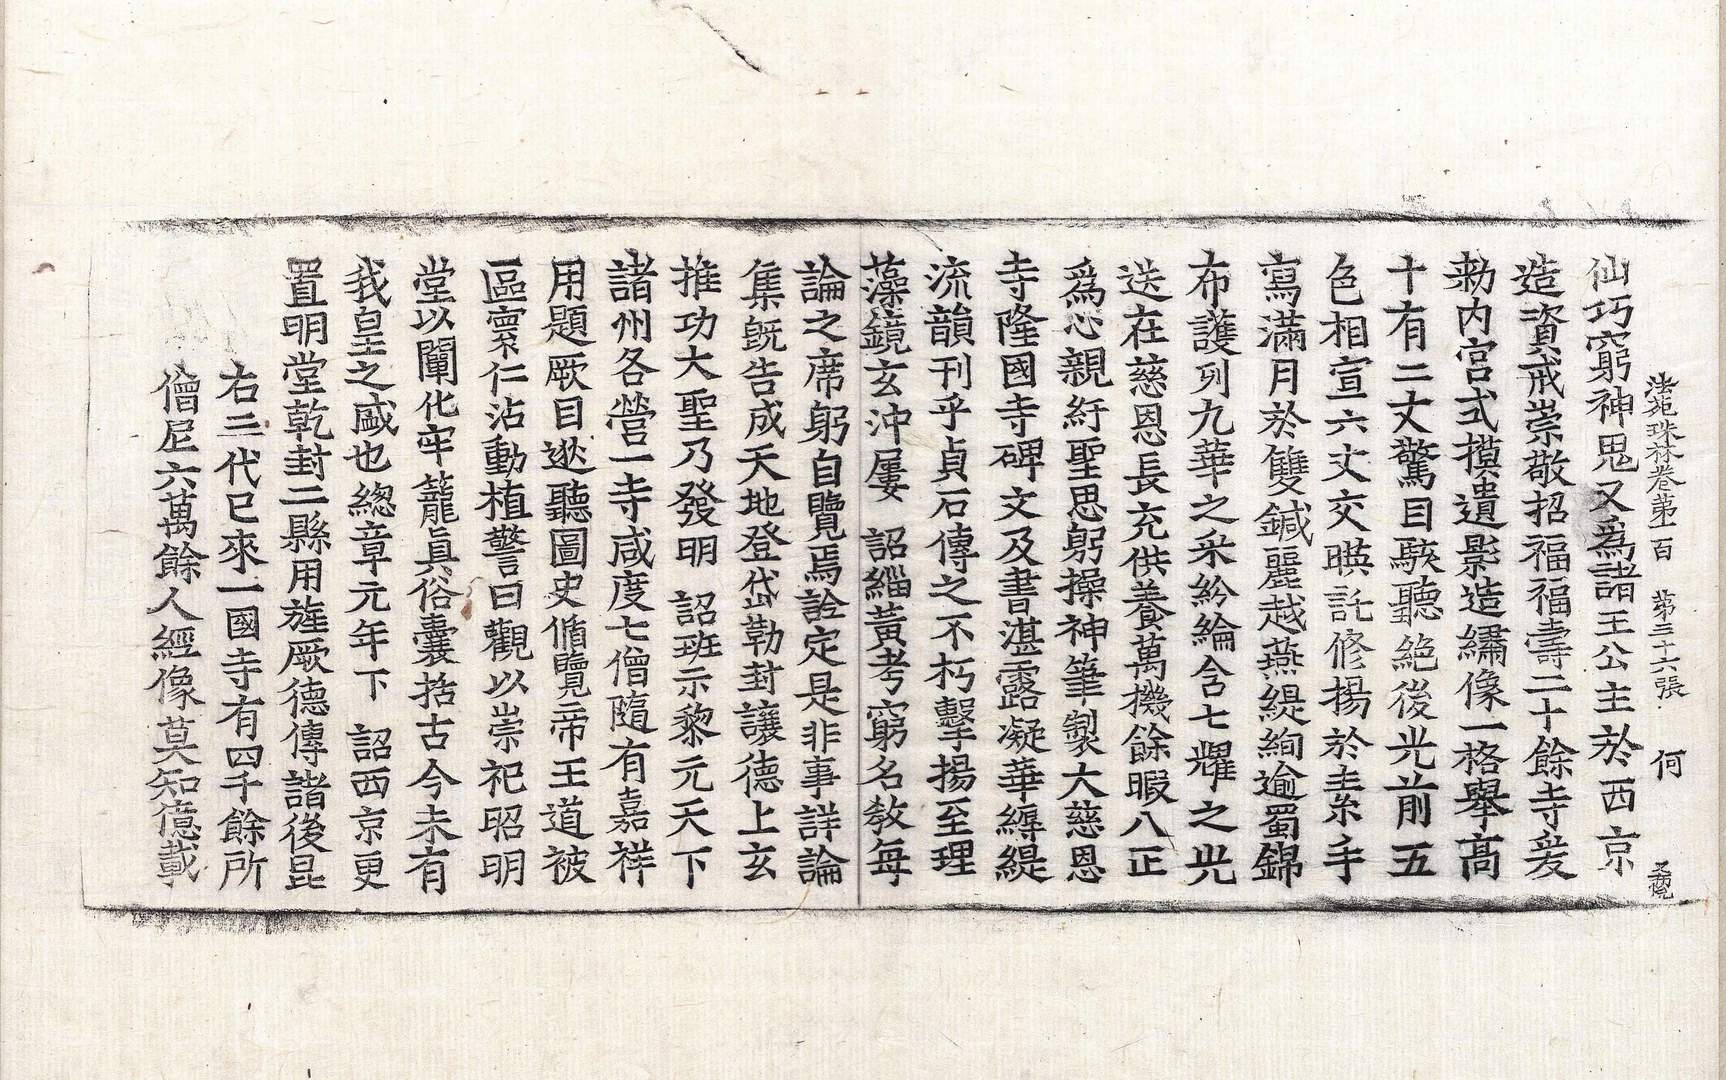 法苑珠林卷第一百　第三十六張　何
仙巧窮神鬼又爲諸王公主於西京
造資戒崇敬招福福壽二十餘寺爰
勑内宮式摸遺影造繡像一格舉高
十有二丈驚目駭聽絶後光前五
色相宣六丈交暎託修揚於素手
寫滿月於雙鍼麗越燕緹絢逾蜀錦
布護列九華之采紛綸含七耀之光
送在慈恩長充供養萬機餘暇八正
爲心親紆聖思躬操神筆製大慈恩
寺隆國寺碑文及書湛露凝華縟緹
流韻刊乎貞石傳之不朽擊揚至理
藻鏡玄沖屢　詔緇黃考窮名教每
論之席躬自覽焉詮定是非事詳論
集旣告成天地登岱勒封讓德上玄
推功大聖乃發明　詔班示黎元天下
諸州各營一寺咸度七僧隨有嘉祥
用題厥目逖聽圖史脩覽帝王道被
區寰仁沾動植警曰觀以崇祀昭明
堂以闡化牢籠眞俗囊括古今未有
我皇之盛也總章元年下　詔西京更
置明堂乾封二縣用旌厥德傳諸後昆
右三代已來一國寺有四千餘所
僧尼六萬餘人經像莫知億載